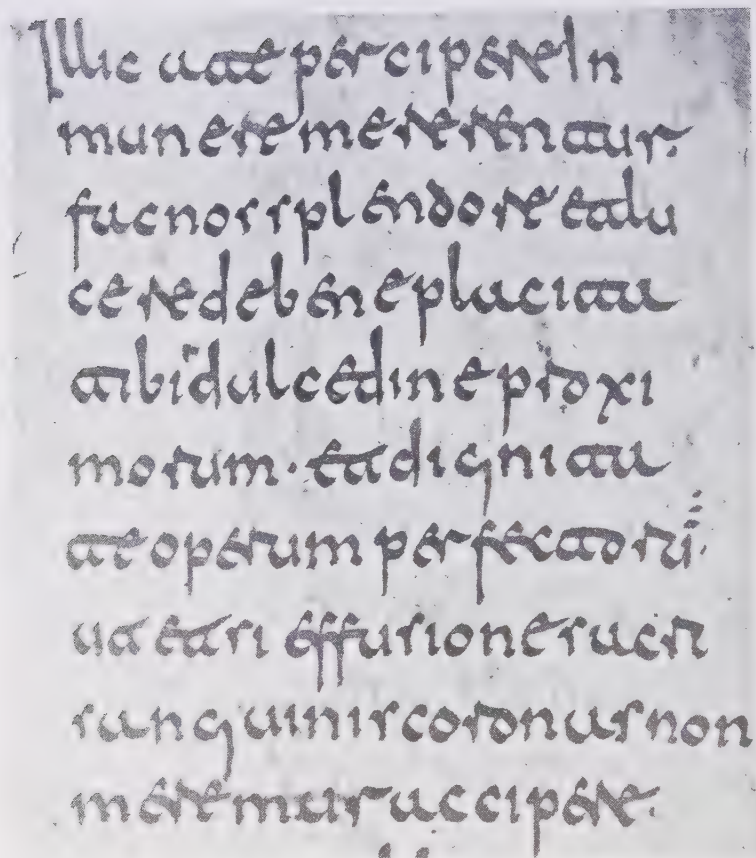 Illic a te percipere In
munere mererentur.
fac nos splendore et lu
cere de beneplacita
tibi dulcedine proxi
morum · et dignita
te operum perfectorū.
ut et si effusione sacri
sanguinis coronas non
meremur accipere.